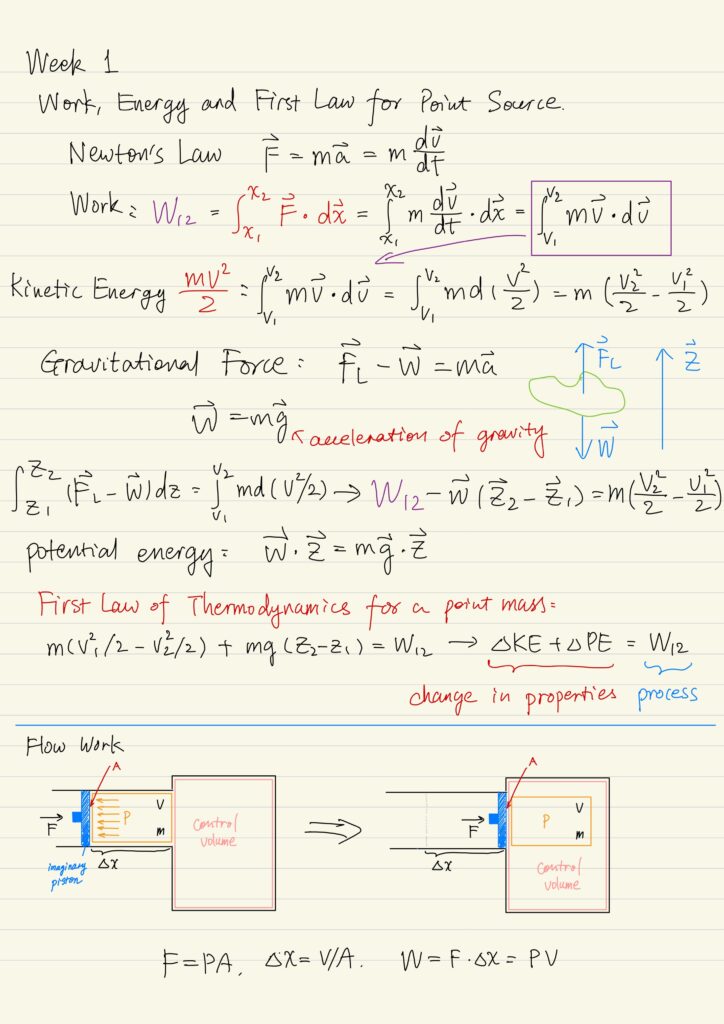 Week 1
Work, Energy and First Law for Point Source.
Newton's Law F⃗ = ma⃗ = m dv⃗/dt
Work: W₁₂ = ∫_{x₁}^{x₂} F⃗ · dx⃗ = ∫_{x₁}^{x₂} m dv⃗/dt · dx⃗ = ∫_{V₁}^{V₂} mv⃗ · dv⃗
Kinetic Energy mV²/2 : ∫_{V₁}^{V₂} mv⃗ · dv⃗ = ∫_{V₁}^{V₂} md(V²/2) = m (V₂²/2 - V₁²/2)
Gravitational Force: F⃗_L - W⃗ = ma⃗
F⃗_L
Z⃗
W⃗ = mg⃗
acceleration of gravity
W⃗
∫_{Z₁}^{Z₂} (F⃗_L - W⃗)dz = ∫_{V₁}^{V₂} md(V²/2) → W₁₂ - W⃗(Z⃗₂ - Z⃗₁) = m(V₂²/2 - V₁²/2)
potential energy: W⃗ · Z⃗ = mg⃗ · Z⃗
First Law of Thermodynamics for a point mass:
m(V₁²/2 - V₂²/2) + mg(Z₂-Z₁) = W₁₂ → ΔKE + ΔPE = W₁₂
change in properties process
Flow Work
A
F⃗
P
V
m
Δx
imaginary
piston
Control
volume
A
F⃗
P
V
m
Δx
Control
volume
F = PA, Δx = V/A. W = F · Δx = PV